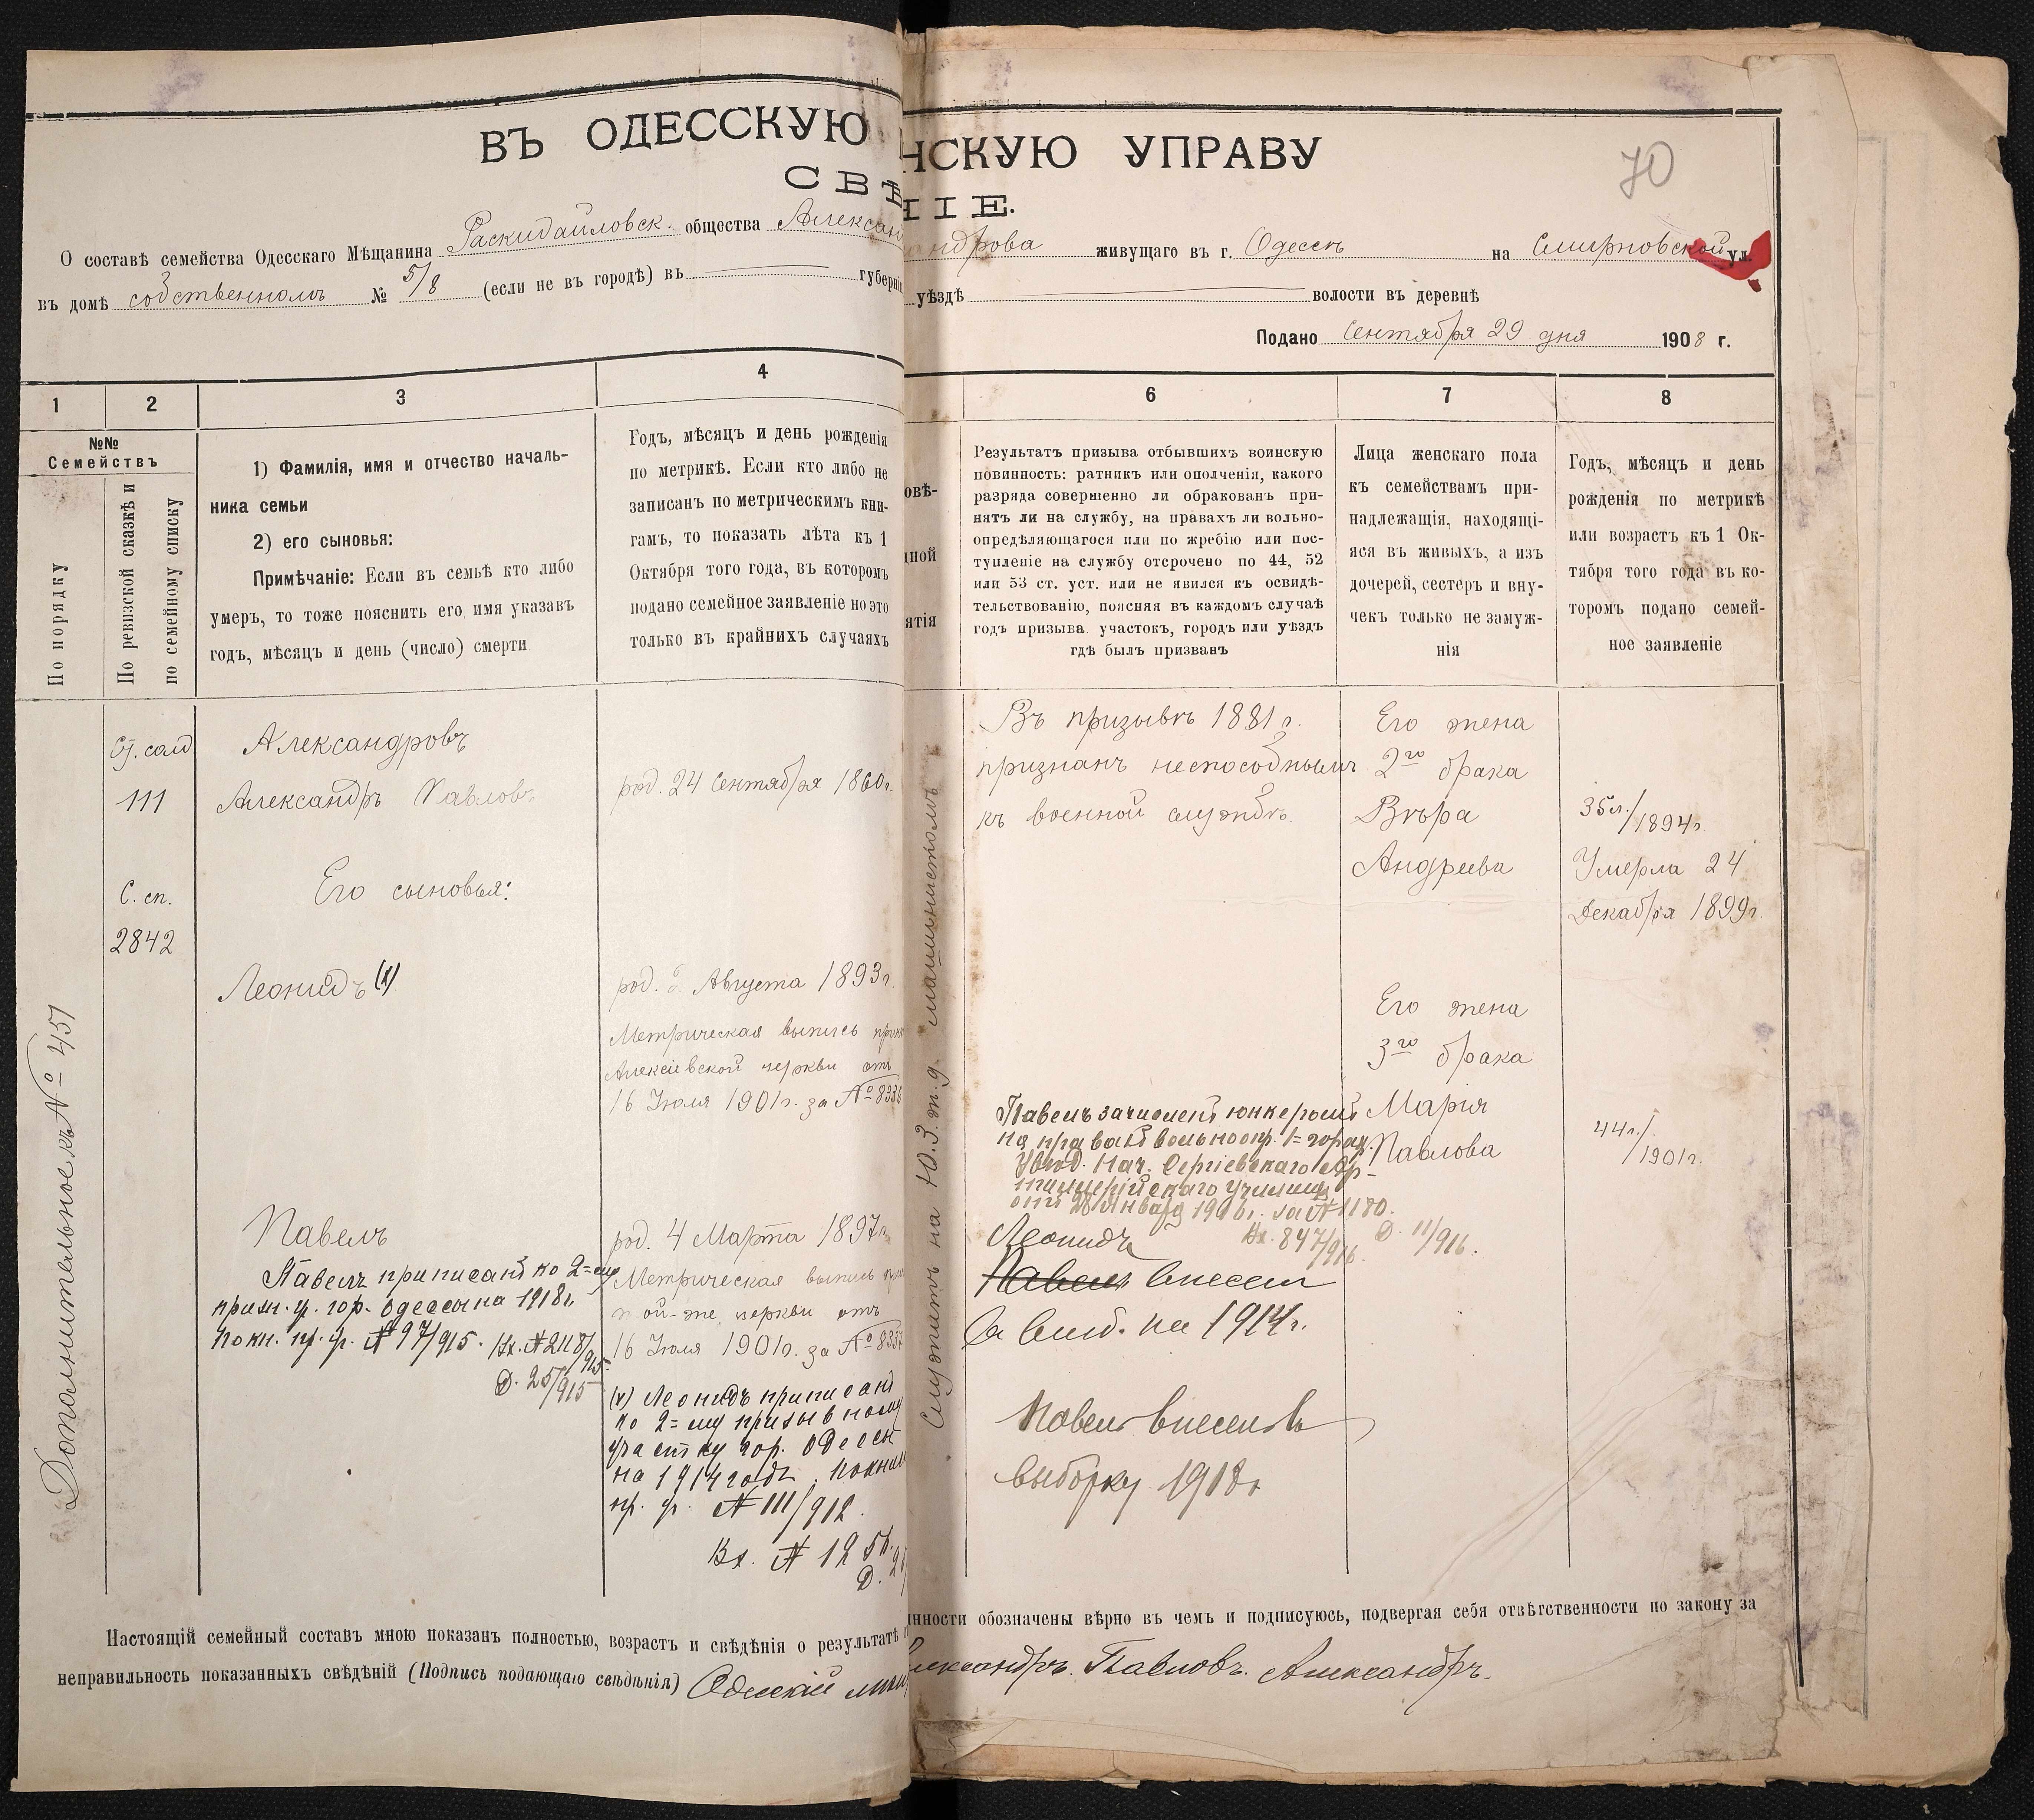 ВЪ ОДЕССКУЮ
НСКУЮ УПРАВУ
70
СВѢ
НІЕ.
О составѣ семейства Одесскаго Мѣщанина Раскидайловск. общества Алексан
ндрова живущаго въ г. Одессѣ на Смирновской ул.
въ домѣ собственномъ № 5/8 (если не въ городѣ) въ губерні
уѣздѣ волости въ деревнѣ
Подано Сентября 29 дня 1908 г.
1
2
3
4
6
7
8
№№
Семействъ
По порядку
По ревизской сказкѣ и
по семейному списку
1) Фамилія, имя и отчество началь-
ника семьи
2) его сыновья:
Примѣчаніе: Если въ семьѣ кто либо
умеръ, то тоже пояснить его имя указавъ
годъ, мѣсяцъ и день (число) смерти
Годъ, мѣсяцъ и день рожденія
по метрикѣ. Если кто либо не
записанъ по метрическимъ кни-
гамъ, то показать лѣта къ 1
Октября того года, въ которомъ
подано семейное заявленіе но это
только въ крайнихъ случаяхъ
овѣ-
ной
ятія
Результатъ призыва отбывшихъ воинскую
повинность: ратникъ или ополченія, какого
разряда совершенно ли обракованъ при-
нятъ ли на службу, на правахъ ли вольно-
опредѣляющагося или по жребію или пос-
тупленіе на службу отсрочено по 44, 52
или 53 ст. уст. или не явился къ освидѣ-
тельствованію, поясняя въ каждомъ случаѣ
годъ призыва участокъ, городъ или уѣздъ
гдѣ былъ призванъ
Лица женскаго пола
къ семействамъ при-
надлежащія, находящі-
яся въ живыхъ, а изъ
дочерей, сестеръ и вну-
чекъ только не замуж-
нія
Годъ, мѣсяцъ и день
рожденія по метрикѣ
или возрастъ къ 1 Ок-
тября того года въ ко-
торомъ подано семей-
ное заявленіе
Дополнительное къ № 451
От. солд
111
С. сп.
2842
Александровъ
Александръ Павловъ
Его сыновья:
Леонидъ (х)
Павелъ
Павелъ приписанъ ко 2=му
приз. уч. гор. Одессы на 1918 г.
по кн. пр. уч. № 97/915. Вх. № 2118/915
Д. 25/915
род. 24 Сентября 1860 г.
род. Августа 1893 г.
Метрическая выпись
Алексіевской церкви отъ
16 Іюля 1901 г. за № 8336
род. 4 Марта 1897 г.
Метрическая выпись
той-же церкви отъ
16 Іюля 1901 г. за № 8337
(х) Леонидъ приписанъ
ко 2=му призывному
участку гор. Одессы
на 1914 годъ. по книг
пр. уч. № 111/912.
Вх. № 1256.
Д.
Служитъ на Ю.З.ж.д. машинистомъ
Въ призывъ 1881 г.
признанъ неспособнымъ
къ военной службѣ.
Павелъ зачисленъ юнкеромъ
на правахъ вольноопр. 1=го разр.
Увѣд. Нач. Сергіевскаго Ар-
тиллерійскаго училища
отъ 28 Января 1916 г. за № 1180.
Вх. 847/916. Д. 11/916.
Леонидъ
Павелъ внесенъ
въ выб. на 1914 г.
Павелъ внесенъ въ
выборку 1918 г.
Его жена
2го брака
Вѣра
Андреева
Его жена
3го брака
Марія
Павлова
35 л./1894 г.
Умерла 24
Декабря 1899 г.
44 г./1901 г.
Настоящій семейный составъ мною показанъ полностью, возрастъ и свѣдѣнія о результатѣ
нности обозначены вѣрно въ чемъ и подписуюсь, подвергая себя отвѣтственности по закону за
неправильность показанныхъ свѣдѣній (Подпись подающаго свѣдѣнія) Одесскій мѣщ
лександръ Павловъ Александръ.